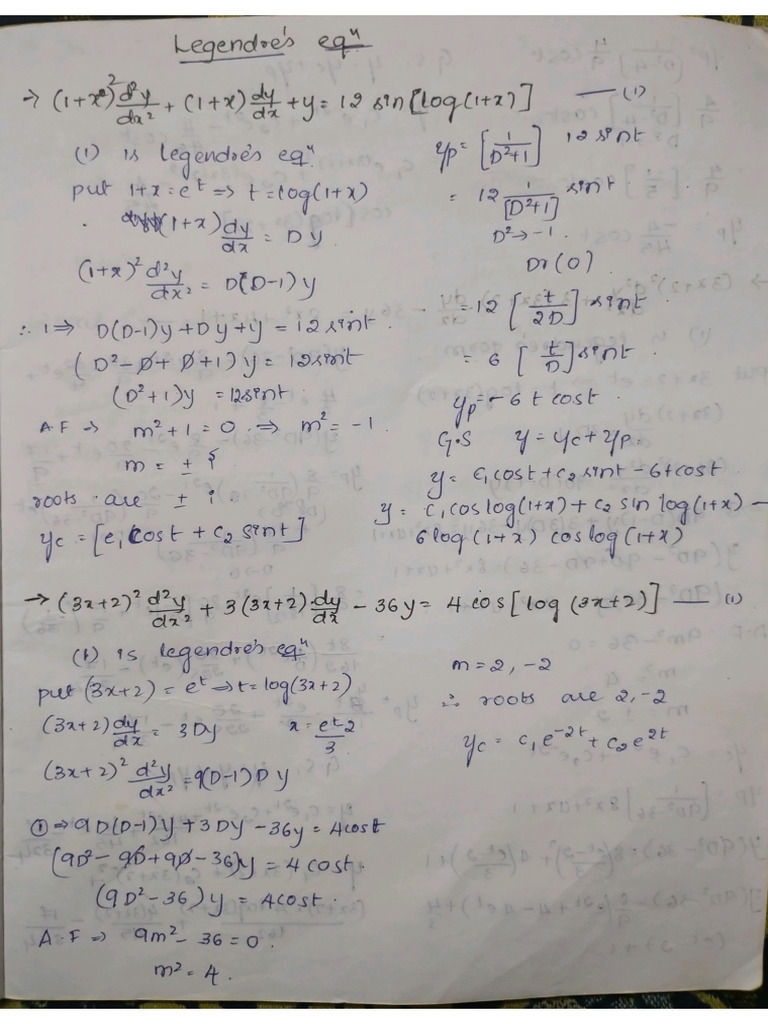 Legendre's eqⁿ
→ (1+x)² d²y/dx² + (1+x) dy/dx + y = 12 sin[log(1+x)] — (1)
(1) is legendre's eqⁿ
put 1+x = eᵗ ⇒ t = log(1+x)
(1+x) dy/dx = Dy
(1+x)² d²y/dx² = D(D-1)y
∴ 1 ⇒ D(D-1)y + Dy + y = 12 sint.
(D² - D + D + 1)y = 12sint
(D²+1)y = 12sint
A.F ⇒ m²+1 = 0 ⇒ m² = -1
m = ± i
roots are ± i
yc = [c₁ cost + c₂ sint]
yp = [1/(D²+1)] 12 sint
= 12 1/[D²+1] sint
D² → -1.
Dr(0)
= 12 [t/2D] sint.
= 6 [t/D] sint.
yp = -6t cost.
G.S y = yc + yp.
y = c₁cost + c₂ sint - 6tcost
y = c₁cos log(1+x) + c₂ sin log(1+x) -
6log(1+x) cos log(1+x)
→ (3x+2)² d²y/dx² + 3(3x+2) dy/dx - 36y = 4 cos[log(3x+2)] — (1)
(1) is legendre's eqⁿ
put (3x+2) = eᵗ ⇒ t = log(3x+2)
(3x+2) dy/dx = 3Dy x = (eᵗ-2)/3
(3x+2)² d²y/dx² = 9(D-1)D y
① ⇒ 9D(D-1)y + 3Dy - 36y = 4cost
(9D² - 9D + 9D - 36)y = 4 cost.
(9D² - 36)y = 4cost.
A.F ⇒ 9m² - 36 = 0.
m² = 4.
m = 2, -2
∴ roots are 2, -2
yc = c₁e⁻²ᵗ + c₂e²ᵗ